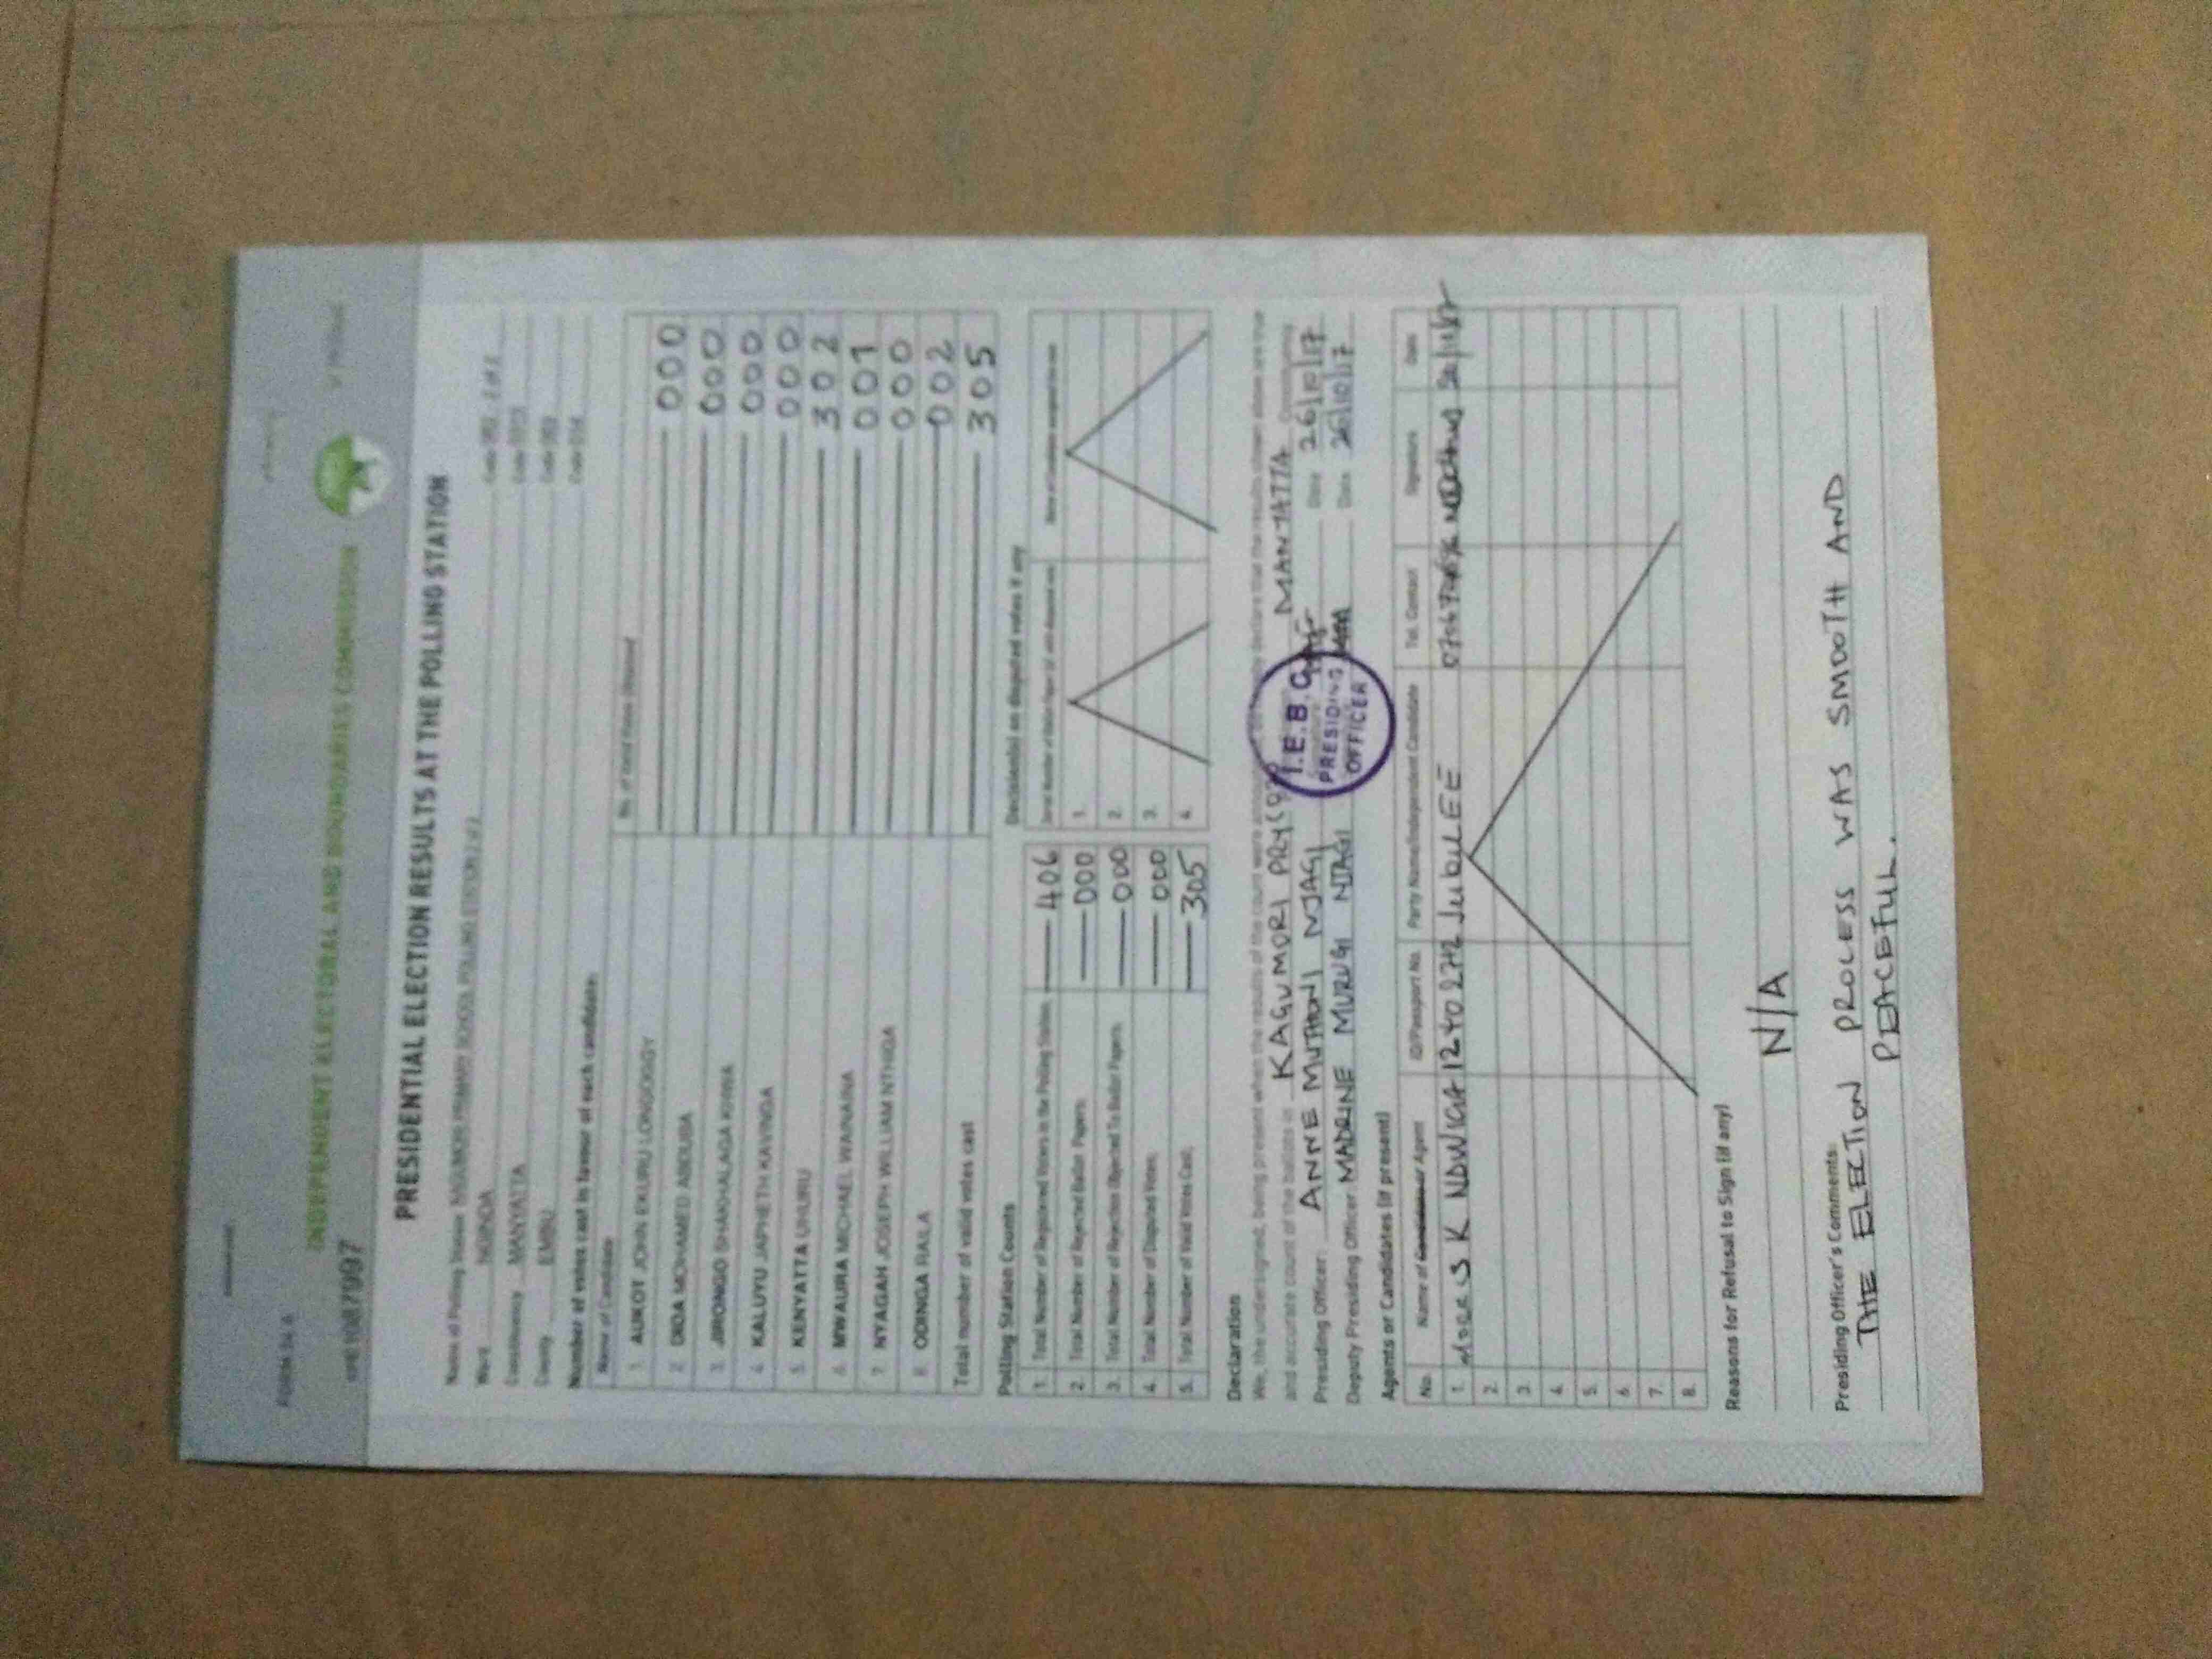 FORM 34 A
INDEPENDENT ELECTORAL AND BOUNDARIES COMMISSION
PRESIDENTIAL ELECTION RESULTS AT THE POLLING STATION
Name of Polling Station KAGUMORI PRIMARY SCHOOL POLLING STATION
Ward NGINDA
Constituency MANYATTA
County EMBU
Number of votes cast in favour of each candidate:
Name of Candidate No. of Valid Votes Obtained
1. AUKOT JOHN EKURU LONGOGGY 000
2. DIDA MOHAMED ABDUBA 000
3. JIRONGO SHAKHALAGA KHWA 000
4. KALUYU JAPHETH KAVINGA 000
5. KENYATTA UHURU 302
6. MWAURA MICHAEL WAINAINA 001
7. NYAGAH JOSEPH WILLIAM NTHIGA 000
8. ODINGA RAILA 002
Total number of valid votes cast 305
Polling Station Counts
1. Total Number of Registered Voters in the Polling Station 406
2. Total Number of Rejected Ballot Papers 000
3. Total Number of Rejection Objected To Ballot Papers 000
4. Total Number of Disputed Votes 000
5. Total Number of Valid Votes Cast 305
Decision(s) on disputed votes if any
1.
2.
3.
4.
Declaration
We, the undersigned, being present when the results of the count were declare that the results shown above are true
and accurate count of the ballots in KAGUMORI PRY MANYATTA Constituency
Presiding Officer: ANNE MUTHONI NJAGI Date 26/10/17
Deputy Presiding Officer MADRINE MURUGI NJAGI Date 26/10/17
I.E.B.C
PRESIDING
OFFICER
Agents or Candidates (if present)
No. Name of Candidate or Agent ID/Passport No. Party Name/Independent Candidate Tel. Contact Signature Date
1. K NDWIGA JubiLEE
2.
3.
4.
5.
6.
7.
8.
Reasons for Refusal to Sign (if any)
N/A
Presiding Officer's Comments:
THE ELECTION PROCESS WAS SMOOTH AND
PEACEFUL.